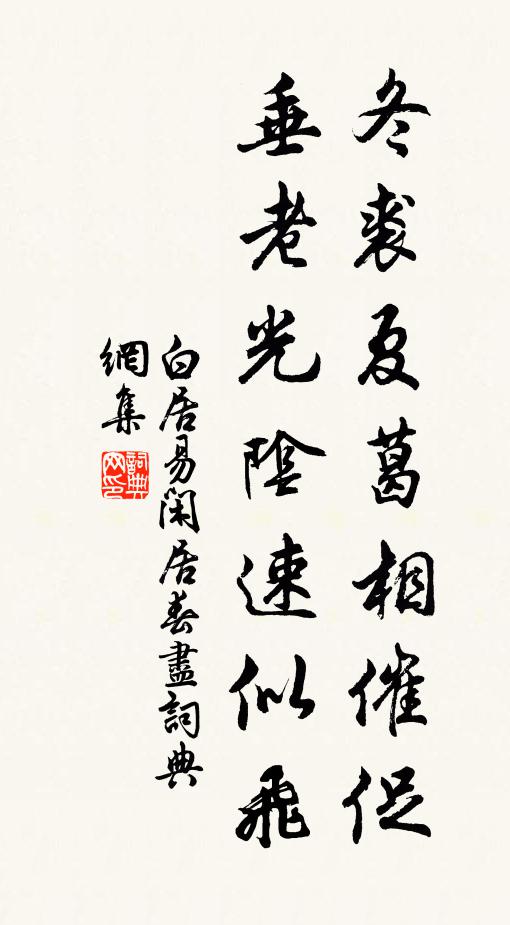 冬裘夏葛相催促
垂老光陰速似飛
白居易閑居春盡詞典
網集
詞典網印